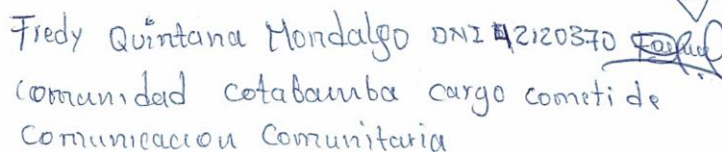 Fredy Quintana Mondalgo DNI 42120370
comunidad cotabamba cargo cometi de
Comunicacion Comunitaria